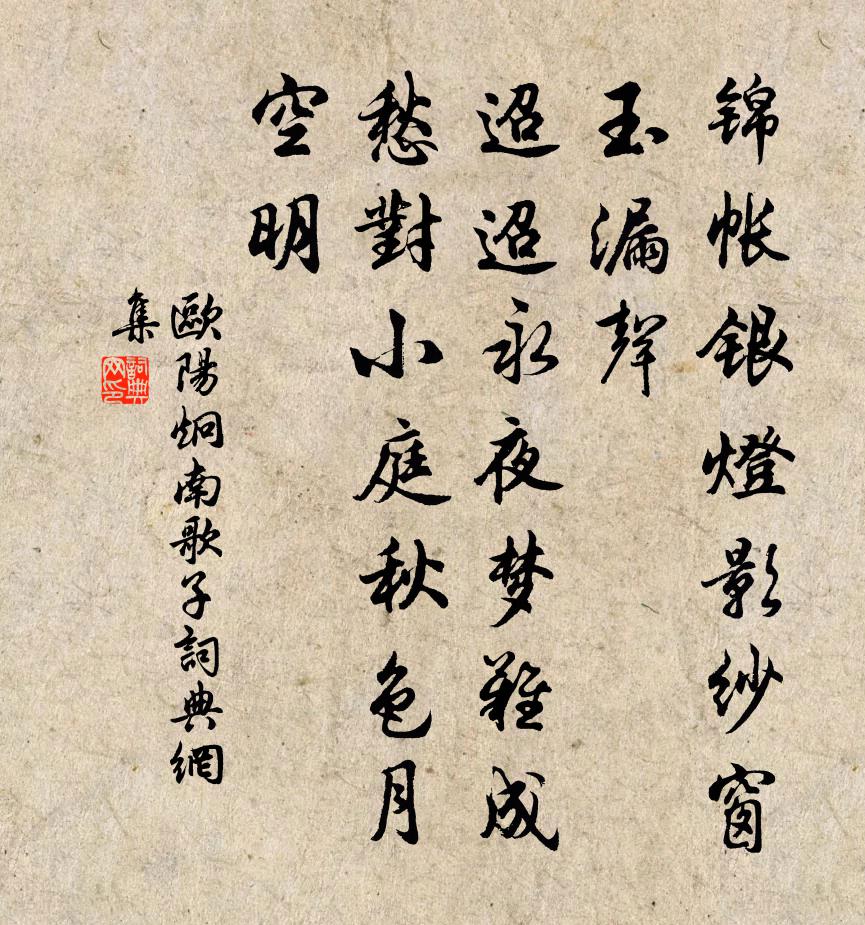 锦帐银燈影纱窗
玉漏聲
迢迢永夜梦難成
愁對小庭秋色月
空明
歐陽炯南歌子詞典網
集
詞典
网印